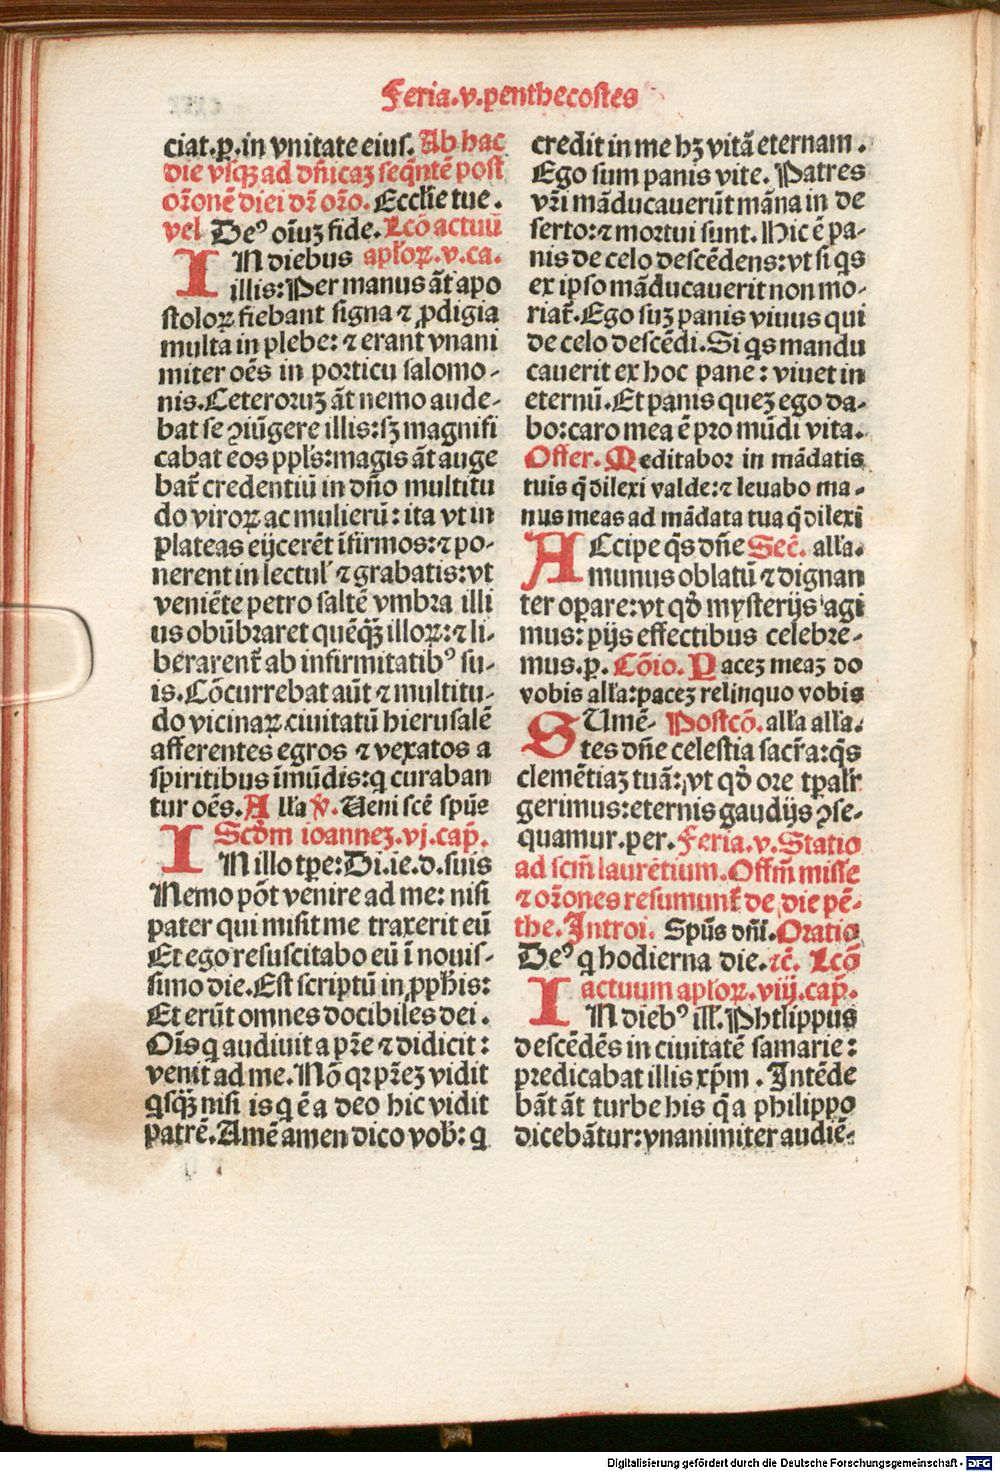 Feria.v.penthecostes
ciat.ꝑ.in vnitate eius. Ab hac
die vsqꝫ ad dñicaꝫ seq̃ntẽ post
or̃onẽ diei dr̃ or̃o. Ecclie tue.
vel Deꝰ oĩuꝫ fide. Lcõ actuũ
IN diebus apl'oꝝ.v.ca.
illis: Per manus ãt apo
stoloꝝ fiebant signa ⁊ ꝓdigia
multa in plebe: ⁊ erant vnani
miter oẽs in porticu salomo-
nis. Ceteroruꝫ ãt nemo aude-
bat se ꝯiũgere illis: sꝫ magnifi
cabat eos ppl's: magis ãt auge
bat̃ credentiũ in dño multitu
do viroꝝ ac mulierũ: ita vt in
plateas eijcerẽt ĩfirmos: ⁊ po-
nerent in lectul' ⁊ grabatis: vt
veniẽte petro saltẽ vmbra illi
us obũbraret quẽqꝫ̃ illoꝝ: ⁊ li-
berarent̃ ab infirmitatibꝰ su-
is. Cõcurrebat aũt ⁊ multitu-
do vicinaꝝ ciuitatũ hierusalẽ
afferentes egros ⁊ vexatos a
spiritibus ĩmũdis: q̇ curaban
tur oẽs. Alla ℣. Ueni scẽ spũs
Scd̃m ioanneꝫ.vj.cap̃.
IN illo tp̃e: Di.ie.d.suis
Nemo põt venire ad me: nisi
pater qui misit me traxerit eũ
Et ego resuscitabo eũ ĩ nouis-
simo die. Est scriptũ in ꝓpħis:
Et erũt omnes docibiles dei.
Oĩs q̇ audiuit a pr̃e ⁊ didicit:
venit ad me. Nõ qr pr̃eꝫ vidit
q̇sqꝫ̃ nisi is q̇ ẽ a deo hic vidit
patrẽ. Amẽ amen dico vob: q̇
credit in me hꝫ vitã eternam.
Ego sum panis vite. Patres
vr̃i mãducauerũt mãna in de
serto: ⁊ mortui sunt. Hic ẽ pa-
nis de celo descẽdens: vt si q̇s
ex ipso mãducauerit non mo-
riat̃. Ego suꝫ panis viuus qui
de celo descẽdi. Si q̇s mandu
cauerit ex hoc pane: viuet in
eternũ. Et panis queꝫ ego da-
bo: caro mea ẽ pro mũdi vita.
Offer. Meditabor in mãdatis
tuis q̃ dilexi valde: ⁊ leuabo ma-
nus meas ad mãdata tua q̃ dilexi
ACcipe q̃s dñe Sec̃. alła.
munus oblatũ ⁊ dignan
ter operare: vt qd̃ mysterijs agi
mus: pijs effectibus celebre-
mus.ꝑ. Cõio. Paceꝫ meaꝫ do
vobis alła: paceꝫ relinquo vobis
SUmẽ- Postcõ. alła alła.
tes dñe celestia sacr̃a: q̃s
clemẽtiaꝫ tuã: vt qd̃ ore tꝑalr̃
gerimus: eternis gaudijs ꝯse-
quamur.per. Feria.v. Statio
ad scm̃ laurẽtium. Offm̃ misse
⁊ or̃ones resumunt̃ de die pẽ-
the. Introi. Spũs dñi. Oratio
Deꝰ q̇ hodierna die.⁊c̃. Lcõ
actuum apl'oꝝ.viij.cap̃.
IN diebꝰ ill'. Phtlippus
descẽdẽs in ciuitatẽ samarie:
predicabat illis xp̃m. Intẽde
bãt ãt turbe his q̃ a philippo
dicebãtur: vnanimiter audiẽ-
Digitalisierung gefördert durch die Deutsche Forschungsgemeinschaft - DFG